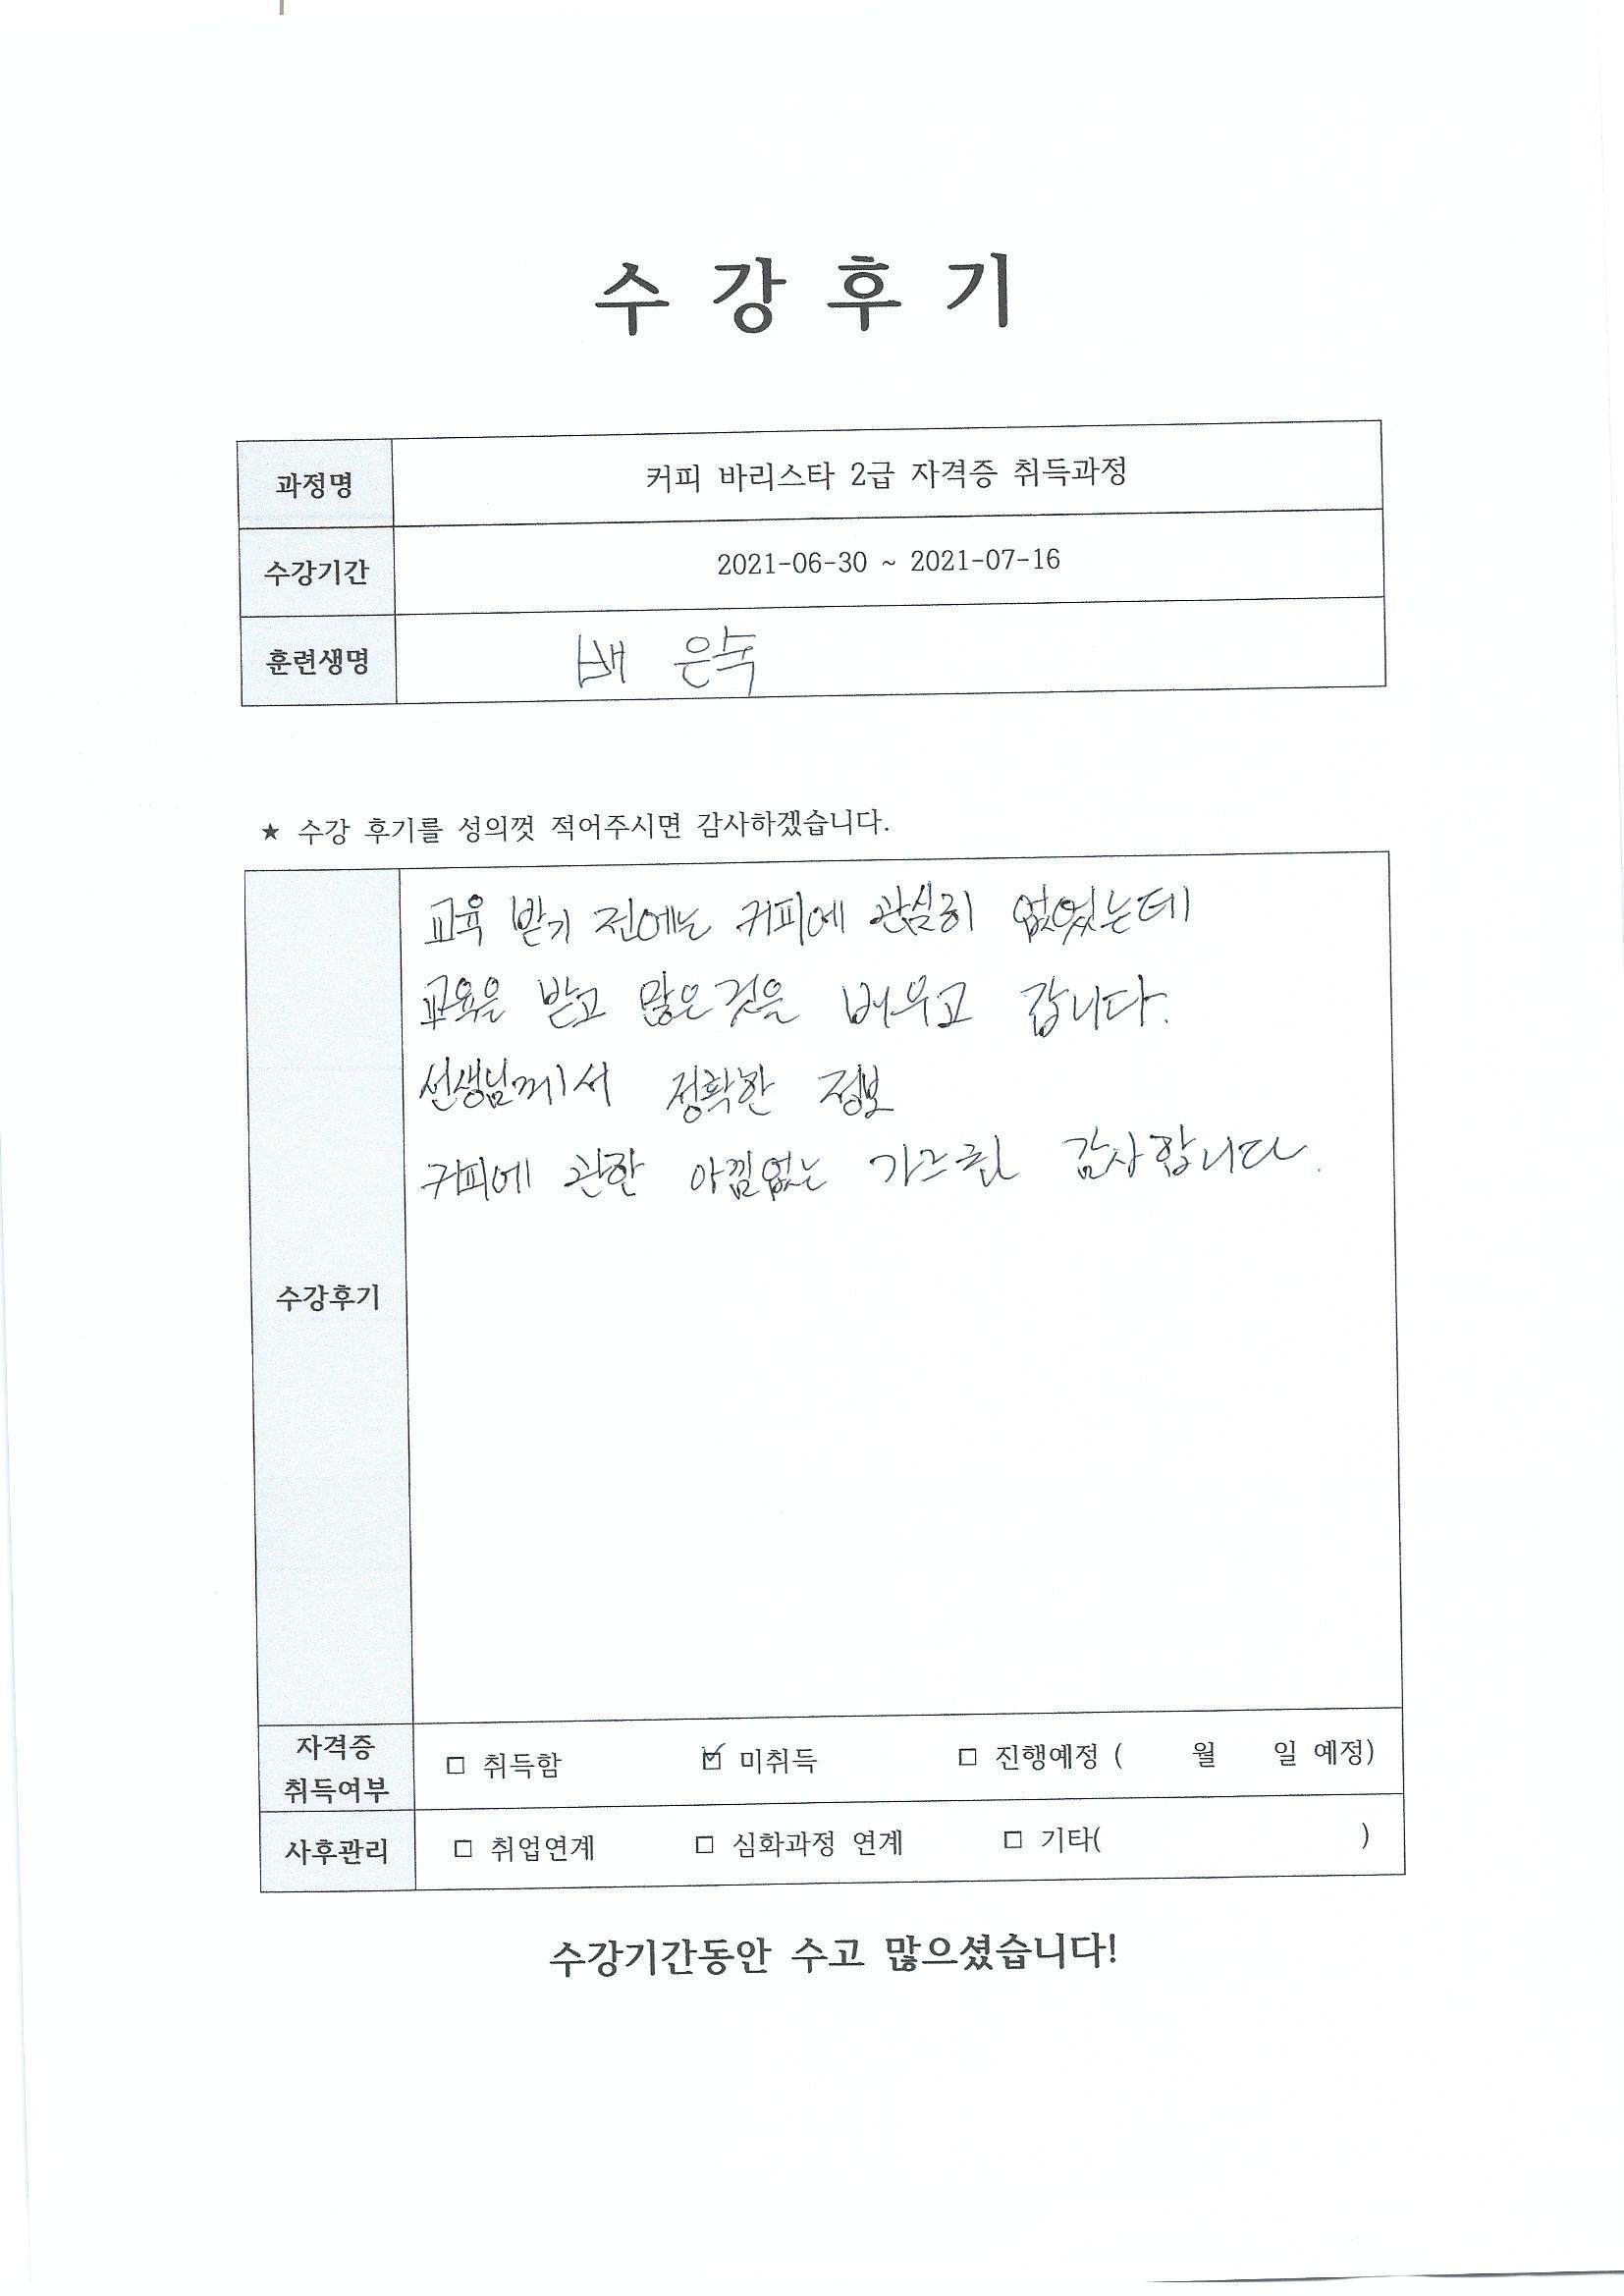 수 강 후 기
과정명 커피 바리스타 2급 자격증 취득과정
수강기간 2021-06-30 ~ 2021-07-16
훈련생명 배 은숙
★ 수강 후기를 성의껏 적어주시면 감사하겠습니다.
수강후기
교육 받기 전에는 커피에 관심히 없었는데
교육은 받고 많은것을 배우고 갑니다.
선생님께서 정확한 정보
커피에 관한 아낌없는 감사합니다.
자격증
취득여부
□ 취득함 ☑ 미취득 □ 진행예정 ( 월 일 예정)
사후관리 □ 취업연계 □ 심화과정 연계 □ 기타( )
수강기간동안 수고 많으셨습니다!